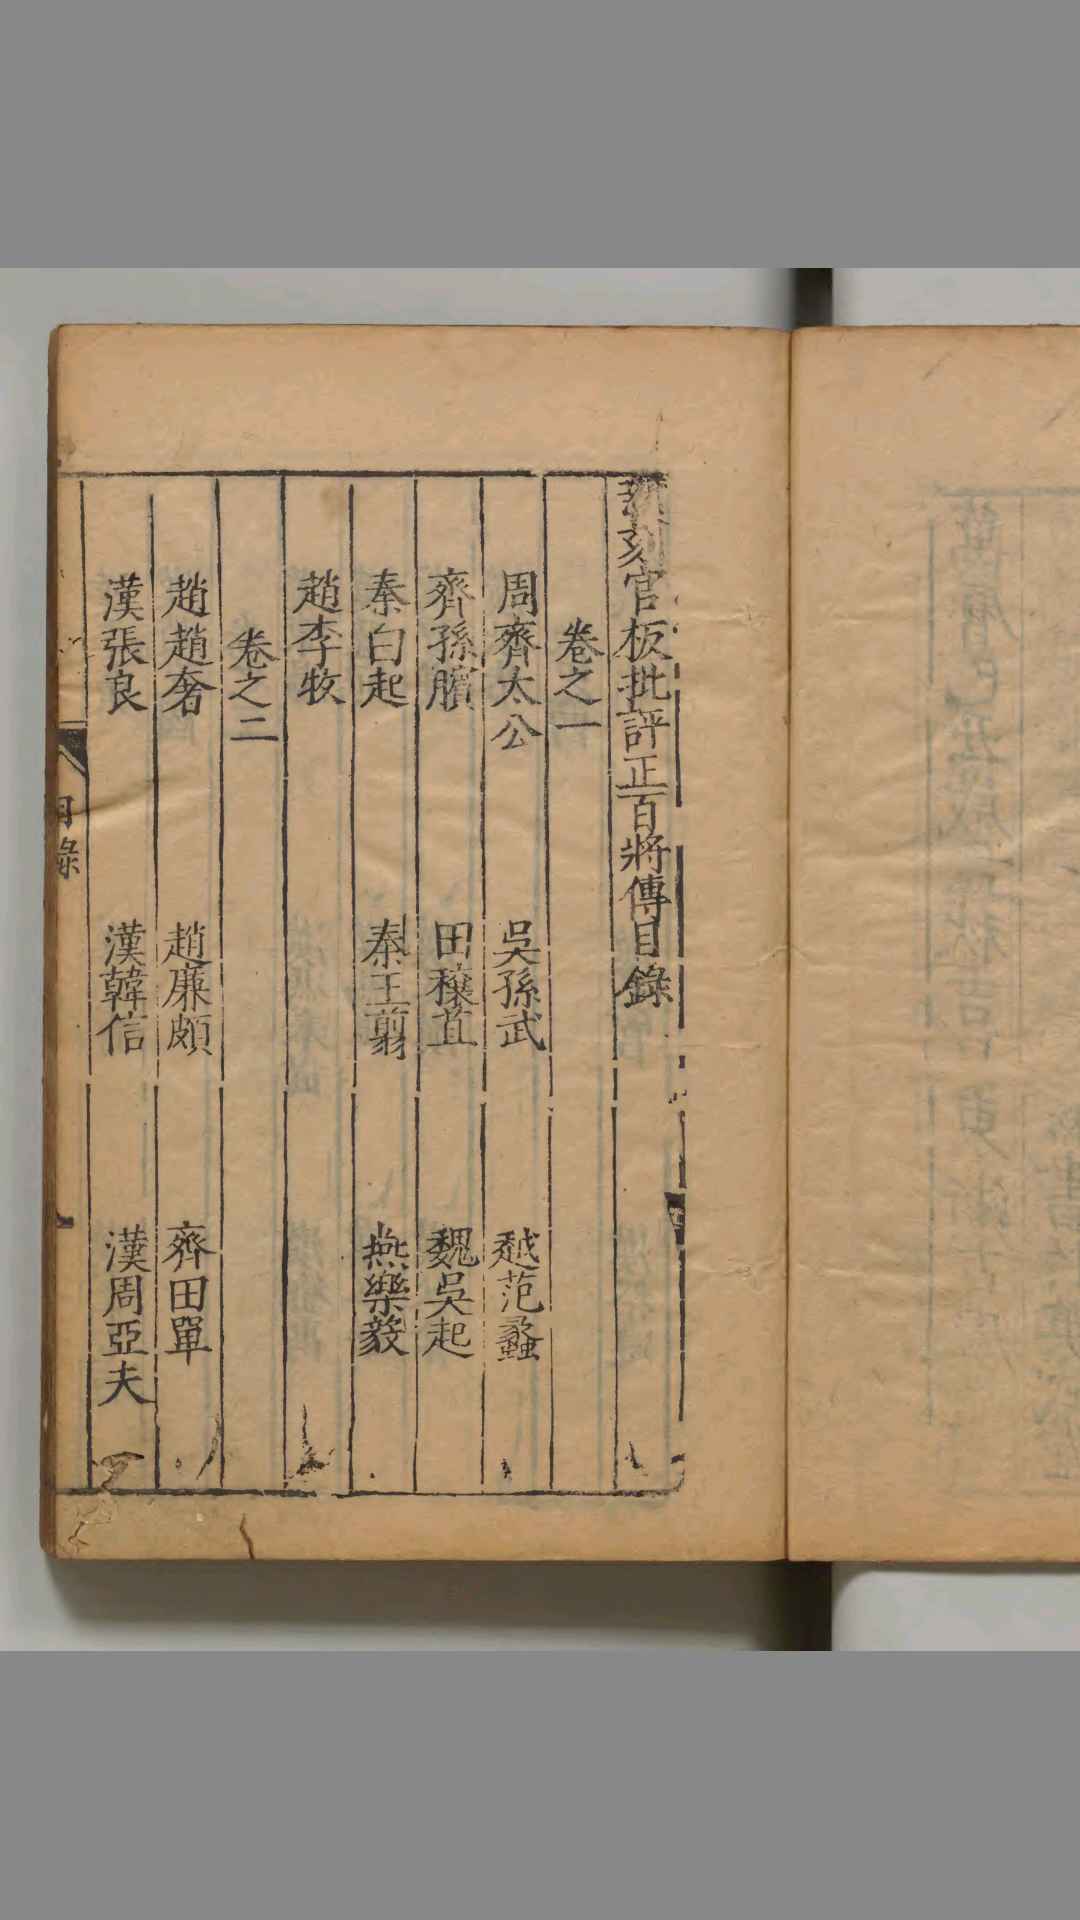 刻官板批評正百將傳目錄
卷之一
周齊太公 吳孫武 越范蠡
齊孫臏 田穰苴 魏吳起
秦白起 秦王翦 燕樂毅
趙李牧
卷之二
趙趙奢 趙廉頗 齊田單
漢張良 漢韓信 漢周亞夫
目錄